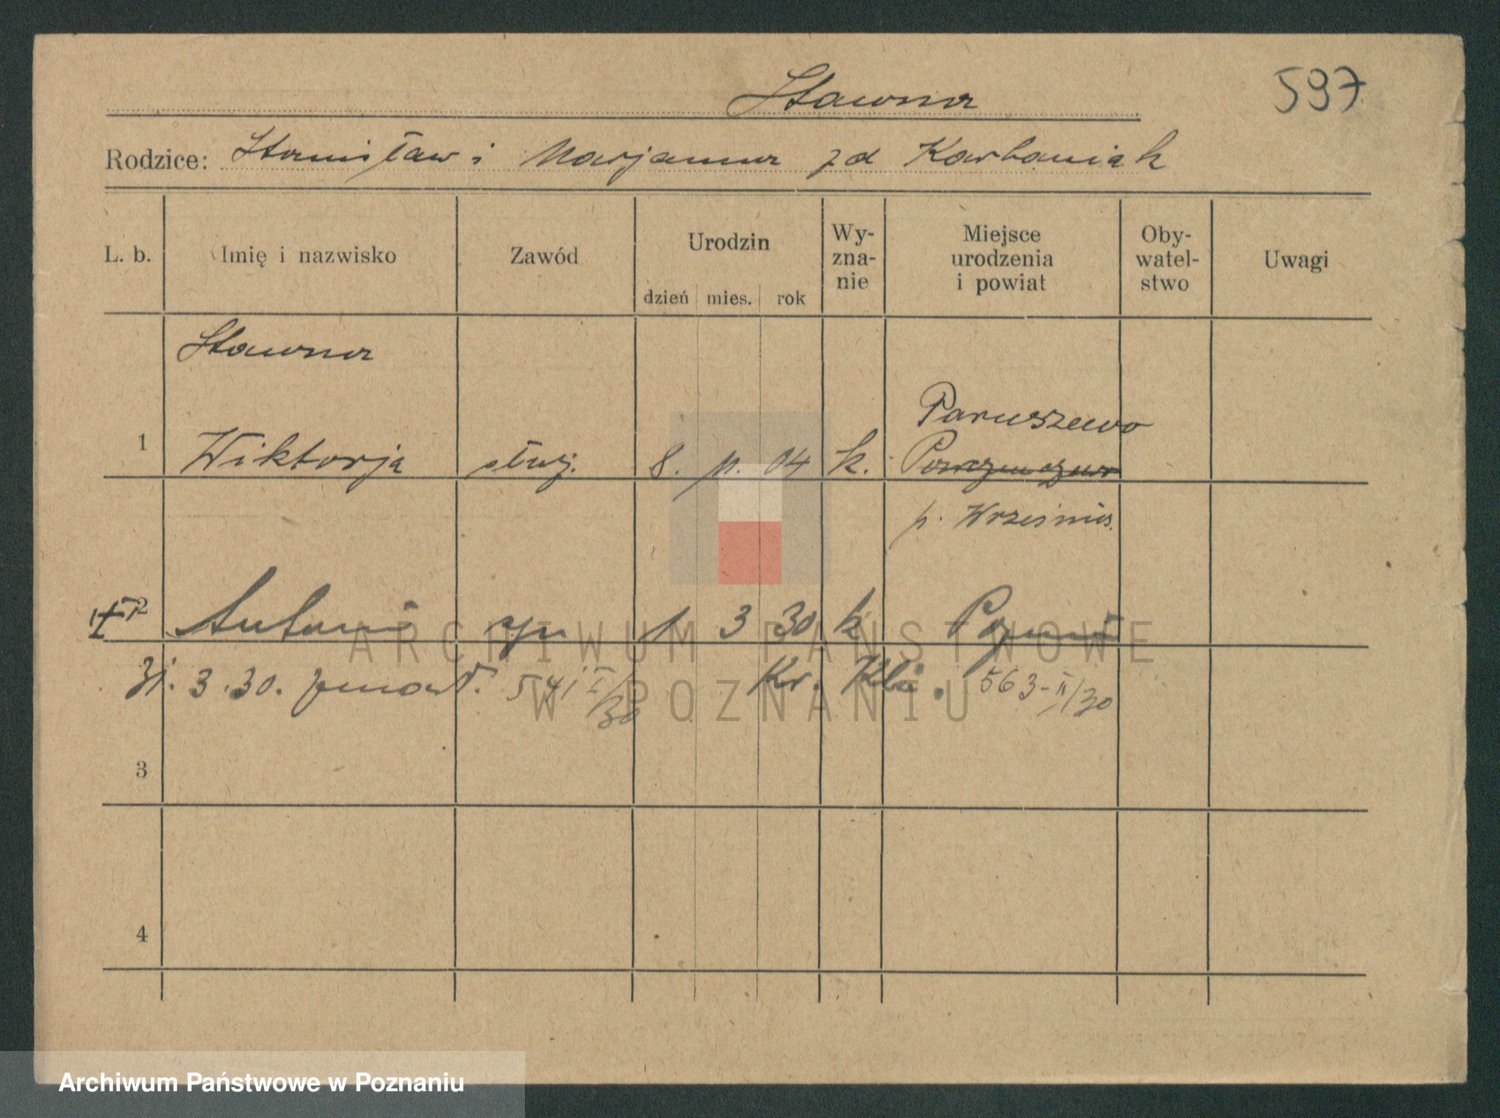 Stawna
597
Rodzice: Stanisław i Marjanna zd Karbaniak
L. b.
Imię i nazwisko
Zawód
Urodzin
dzień mies. rok
Wy-
zna-
nie
Miejsce
urodzenia
i powiat
Oby-
watel-
stwo
Uwagi
Stawna
Paruszewo
1 Wiktorja służ. 8. 11. 04 k.
p. Września
2 Antoni syn 1 3 30 k Poznań
31. 3. 30. zmarł. 541 I/30 Kr. 563-II/30
3
4
ARCHIWUM PAŃSTWOWE
W POZNANIU
Archiwum Państwowe w Poznaniu